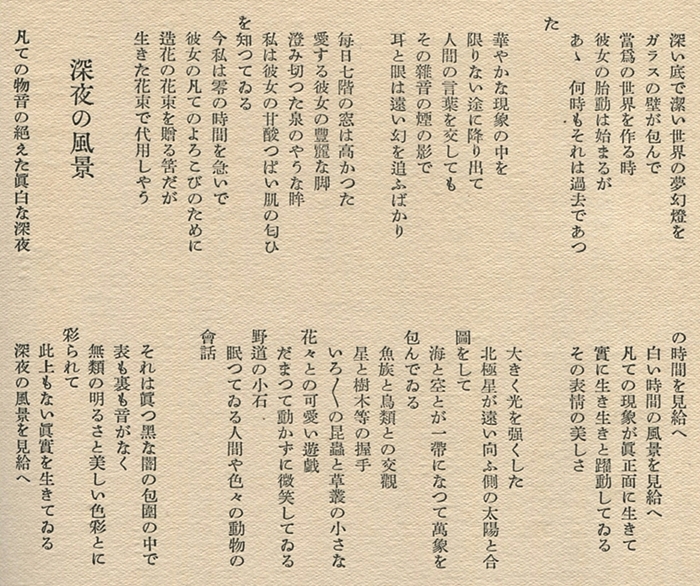 深い底で潔い世界の夢幻燈を
ガラスの壁が包んで
當爲の世界を作る時
彼女の胎動は始まるが
あゝ 何時もそれは過去であつ
た
華やかな現象の中を
限りない途に降り出て
人間の言葉を交しても
その雜音の煙の影で
耳と眼は遠い幻を追ふばかり
每日七階の窓は高かつた
愛する彼女の豐麗な脚
澄み切つた泉のやうな眸
私は彼女の甘酸つぱい肌の匂ひ
を知つてゐる
今私は零の時間を急いで
彼女の凡てのよろこびのために
造花の花束を贈る筈だが
生きた花束で代用しやう
深夜の風景
凡ての物音の絕えた眞白な深夜
の時間を見給へ
白い時間の風景を見給へ
凡ての現象が眞正面に生きて
實に生き生きと躍動してゐる
その表情の美しさ
大きく光を强くした
北極星が遠い向ふ側の太陽と合
圖をして
海と空とが一帶になつて萬象を
包んでゐる
魚族と鳥類との交觀
星と樹木等の握手
いろ〳〵の昆蟲と草叢の小さな
花々との可愛い遊戲
だまつて動かずに微笑してゐる
野道の小石
眠つてゐる人間や色々の動物の
會話
それは眞つ黑な闇の包圍の中で
表も裏も音がなく
無類の明るさと美しい色彩とに
彩られて
此上もない眞實を生きてゐる
深夜の風景を見給へ